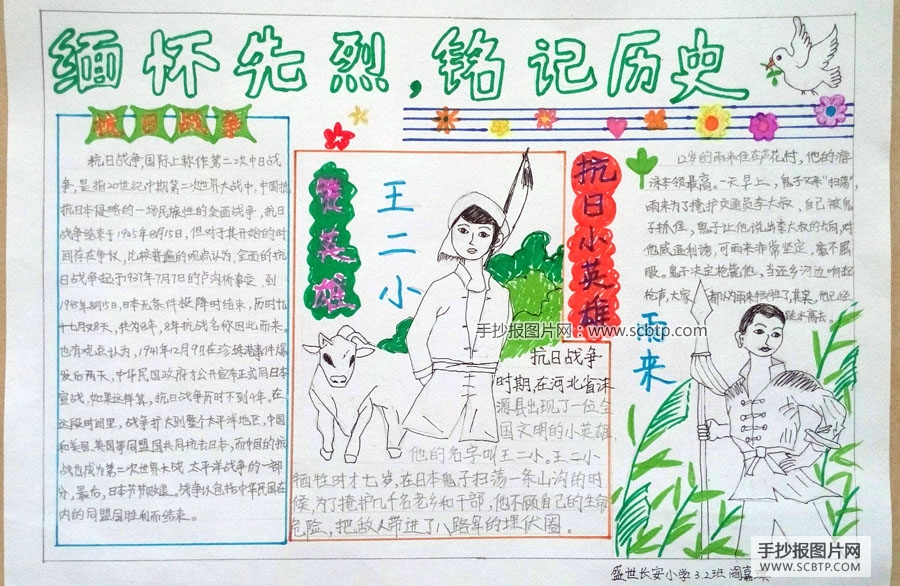 缅怀先烈，铭记历史
抗日战争
抗日战争，国际上称作第二次中日战
争，是指20世纪中期第二次世界大战中，中国抵
抗日本侵略的一场民族性的全面战争，抗日
战争结束于1945年8月15日，但对于其开始的时
间存在争议，比较普遍的观点认为，全面的抗
日战争起于1937年7月7日的卢沟桥事变，到
1945年8月15日，日本无条件投降时结束，历时九
十七月28天，共为8年，8年抗战名称因此而来。
也有观点认为，1941年12月9日在珍珠港事件爆
发后两天，中华民国政府才公开宣布正式向日本
宣战，如果这样算，抗日战争历时不到4年，在
这段时间里，战争扩大到整个太平洋地区，中国
和美国、英国等同盟国共同抗击日本，而中国的抗
战也成为第二次世界大战太平洋战争的一部
分，最后，日本节节败退，战争以包括中华民国在
内的同盟国胜利而结束。
英雄
王二小
抗日战争
时期，在河北省涞
源县出现了一位全
国文明的小英雄，
他的名字叫王二小。王二小
牺牲时才七岁，在日本鬼子扫荡一条山沟的时
候，为了掩护几千名老乡和干部，他不顾自己的生命
危险，把敌人带进了八路军的埋伏圈。
抗日小英雄
12岁的雨来住在芦花村，他的游
泳本领最高。一天早上，鬼子又来“扫荡”，
雨来为了掩护交通员李大叔，自己被鬼
子抓住，鬼子让他说出李大叔的去向，对
他威逼利诱，可雨来非常坚定，毫不屈
服。鬼子决定枪毙他，当还乡河边响起
枪声，大家都认为雨来牺牲了，其实，他已经
跳水离去。
雨来
手抄报图片网：www.scbtp.com
手抄报图片网
WWW.SCBTP.COM
盛世长安小学3.2班 阎嘉